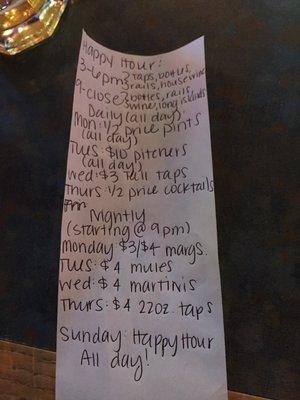 Happy Hour:
3-6pm 3 taps, bottles,
3 rails, housewine
9-close 3 bottles, rails,
3 wine, long islands
Daily (all day):
Mon: 1/2 price pints
(all day)
Tues: $10 pitchers
(all day)
wed: $3 tall taps
Thurs: 1/2 price cocktails
Nightly
(starting @ 9pm)
Monday $3/$4 margs.
Tues: $4 mules
Wed: $4 martinis
Thurs: $4 22oz. taps
Sunday: Happy Hour
All day!